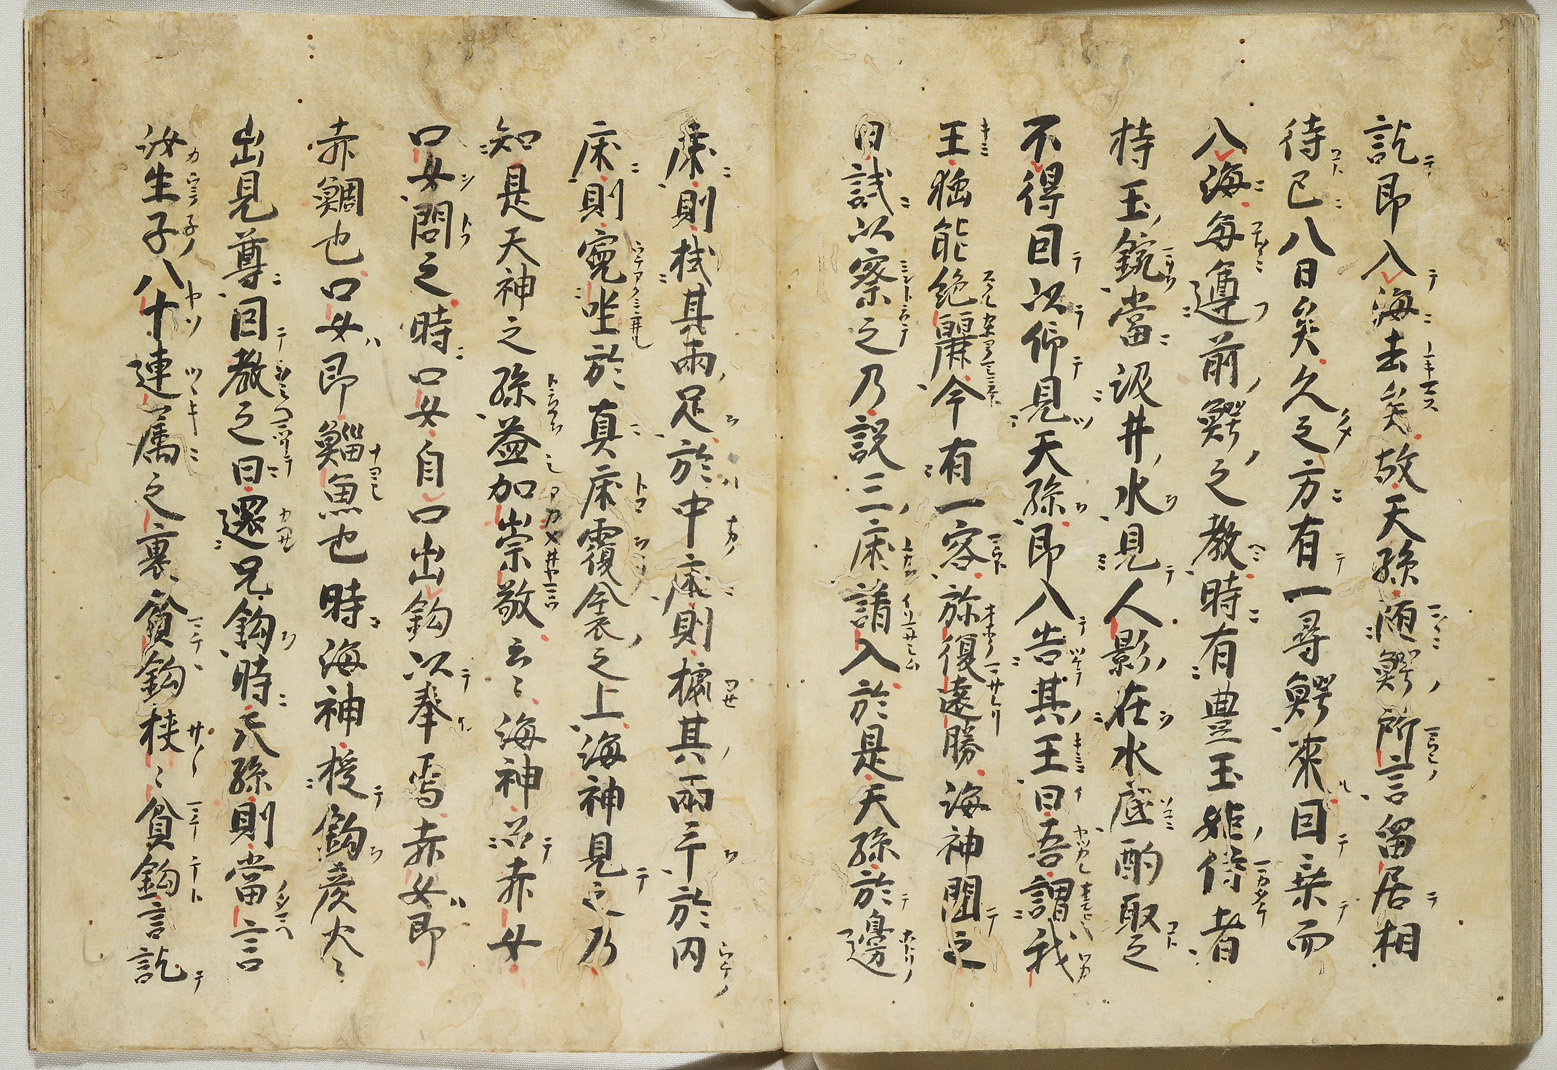 訖即入海去矣故天孫随鰐所言留居相
待已八日矣久之方有一尋鰐来因乗而
入海毎遵前鰐之教時有豊玉姫侍者
持玉鋺當汲井水見人影在水底酌取之
不得因以仰見天孫即入告其王曰吾謂我
王独能絶麗今有一客弥復遠勝海神聞之
曰試以察之乃設三床請入於是天孫於邊
床則拭其両足於中床則據其両手於内
床則寛坐於真床覆衾之上海神見之乃
知是天神之孫益加崇敬云〻海神召赤女
口女問之時口女自口出鈎以奉焉赤女即
赤鯛也口女即鯔魚也時海神授鈎彦火〻
出見尊因教之曰還兄鈎時天孫則當言
汝生子八十連属之裏貧鈎狭〻貧鈎言訖